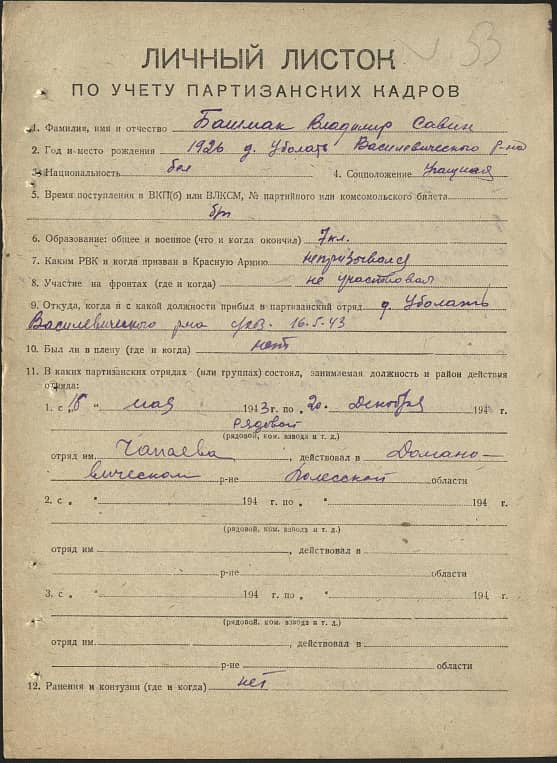 53
ЛИЧНЫЙ ЛИСТОК
ПО УЧЕТУ ПАРТИЗАНСКИХ КАДРОВ
1. Фамилия, имя и отчество Башмак Владимир Савич
2. Год и место рождения 1926 д. Уболать Василевического р-на
3. Национальность бел 4. Соцположение Учащийся
5. Время поступления в ВКП(б) или ВЛКСМ, № партийного или комсомольского билета
б/п
6. Образование: общее и военное (что и когда окончил) 7 кл.
7. Каким РВК и когда призван в Красную Армию непризывался
8. Участие на фронтах (где и когда) не участвовал
9. Откуда, когда и с какой должности прибыл в партизанский отряд д. Уболать
Василевического р-на 16.5.43
10. Был ли в плену (где и когда) нет
11. В каких партизанских отрядах (или группах) состоял, занимаемая должность и район действия
отряда:
1. с „16 “ мая 1943 г. по „20. декабря 194 г.
рядовой
(рядовой, ком. взвода и т. д.)
отряд им. Чапаева, действовал в Домано-
вическом р-не Полесской области
2. с „ “ 194 г. по „ “ 194 г.
(рядовой, ком. взвода и т. д.)
отряд им. , действовал в
р-не области
3. с „ “ 194 г. по „ “ 194 г.
(рядовой, ком. взвода и т. д.)
отряд им. , действовал в
р-не области
12. Ранения и контузии (где и когда) нет